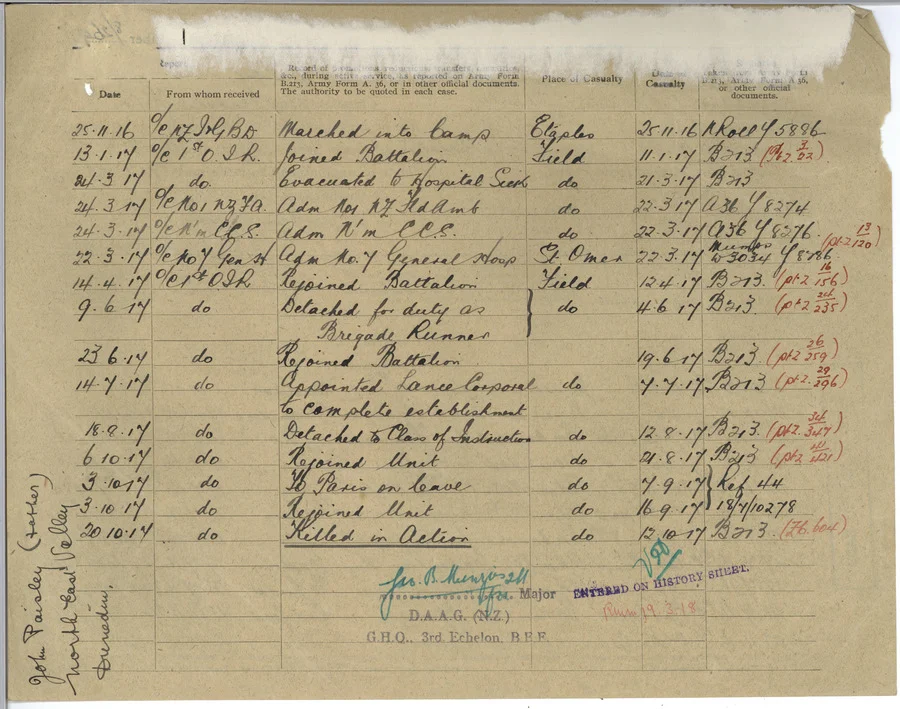 Report
Record of
&c., during active service, as reported on Army Form
B.213, Army Form A. 36, or in other official documents.
The authority to be quoted in each case.
Date From whom received Place of Casualty Casualty
or other official
documents.
25.11.16 Marched into Camp Etaples 25.11.16 N Roll Y 5886
13.1.17 O/C 1st O.I.R. Joined Battalion Field 11.1.17 B213 (Pt 2 3/22)
24.3.17 do. Evacuated to Hospital Sick do 21.3.17 B213
24.3.17 O/C No 1 NZ F.A. Adm No 1 NZ Fld Amb do 22.3.17 A36 Y 8274
24.3.17 O/C N'm C.C.S. Adm N'm C.C.S. do 22.3.17 A36 Y 8276 (pt 2 13/120)
22.3.17 O/C No 7 Gen H Adm No. 7 General Hosp St. Omer 22.3.17 Mumps W3034 Y 8786
14.4.17 O/C 1st O.I.R Rejoined Battalion Field 12.4.17 B213. (pt 2 16/156)
9.6.17 do Detached for duty as do 4.6.17 B213. (pt 2 24/235)
Brigade Runner
23.6.17 do Rejoined Battalion 19.6.17 B213. (pt 2 26/259)
14.7.17 do Appointed Lance Corporal do 7.7.17 B213 (pt 2 29/296)
to complete establishment
18.8.17 do Detached to Class of Instruction do 12.8.17 B213. (pt 2 34/347)
6.10.17 do Rejoined Unit do 21.8.17 B213 (pt 2 41/421)
3.10.17 do To Paris on leave do 7.9.17 Ref 44
3.10.17 do Rejoined Unit do 16.9.17 18/7/10278
20.10.17 do Killed in Action do 12.10.17 B213 (Z6.604)
Major
D.A.A.G. (N.Z.)
G.H.Q., 3rd. Echelon, B.E.F.
ENTERED ON HISTORY SHEET.
19.3.18
John Paisley (father)
North East Valley
Dunedin.